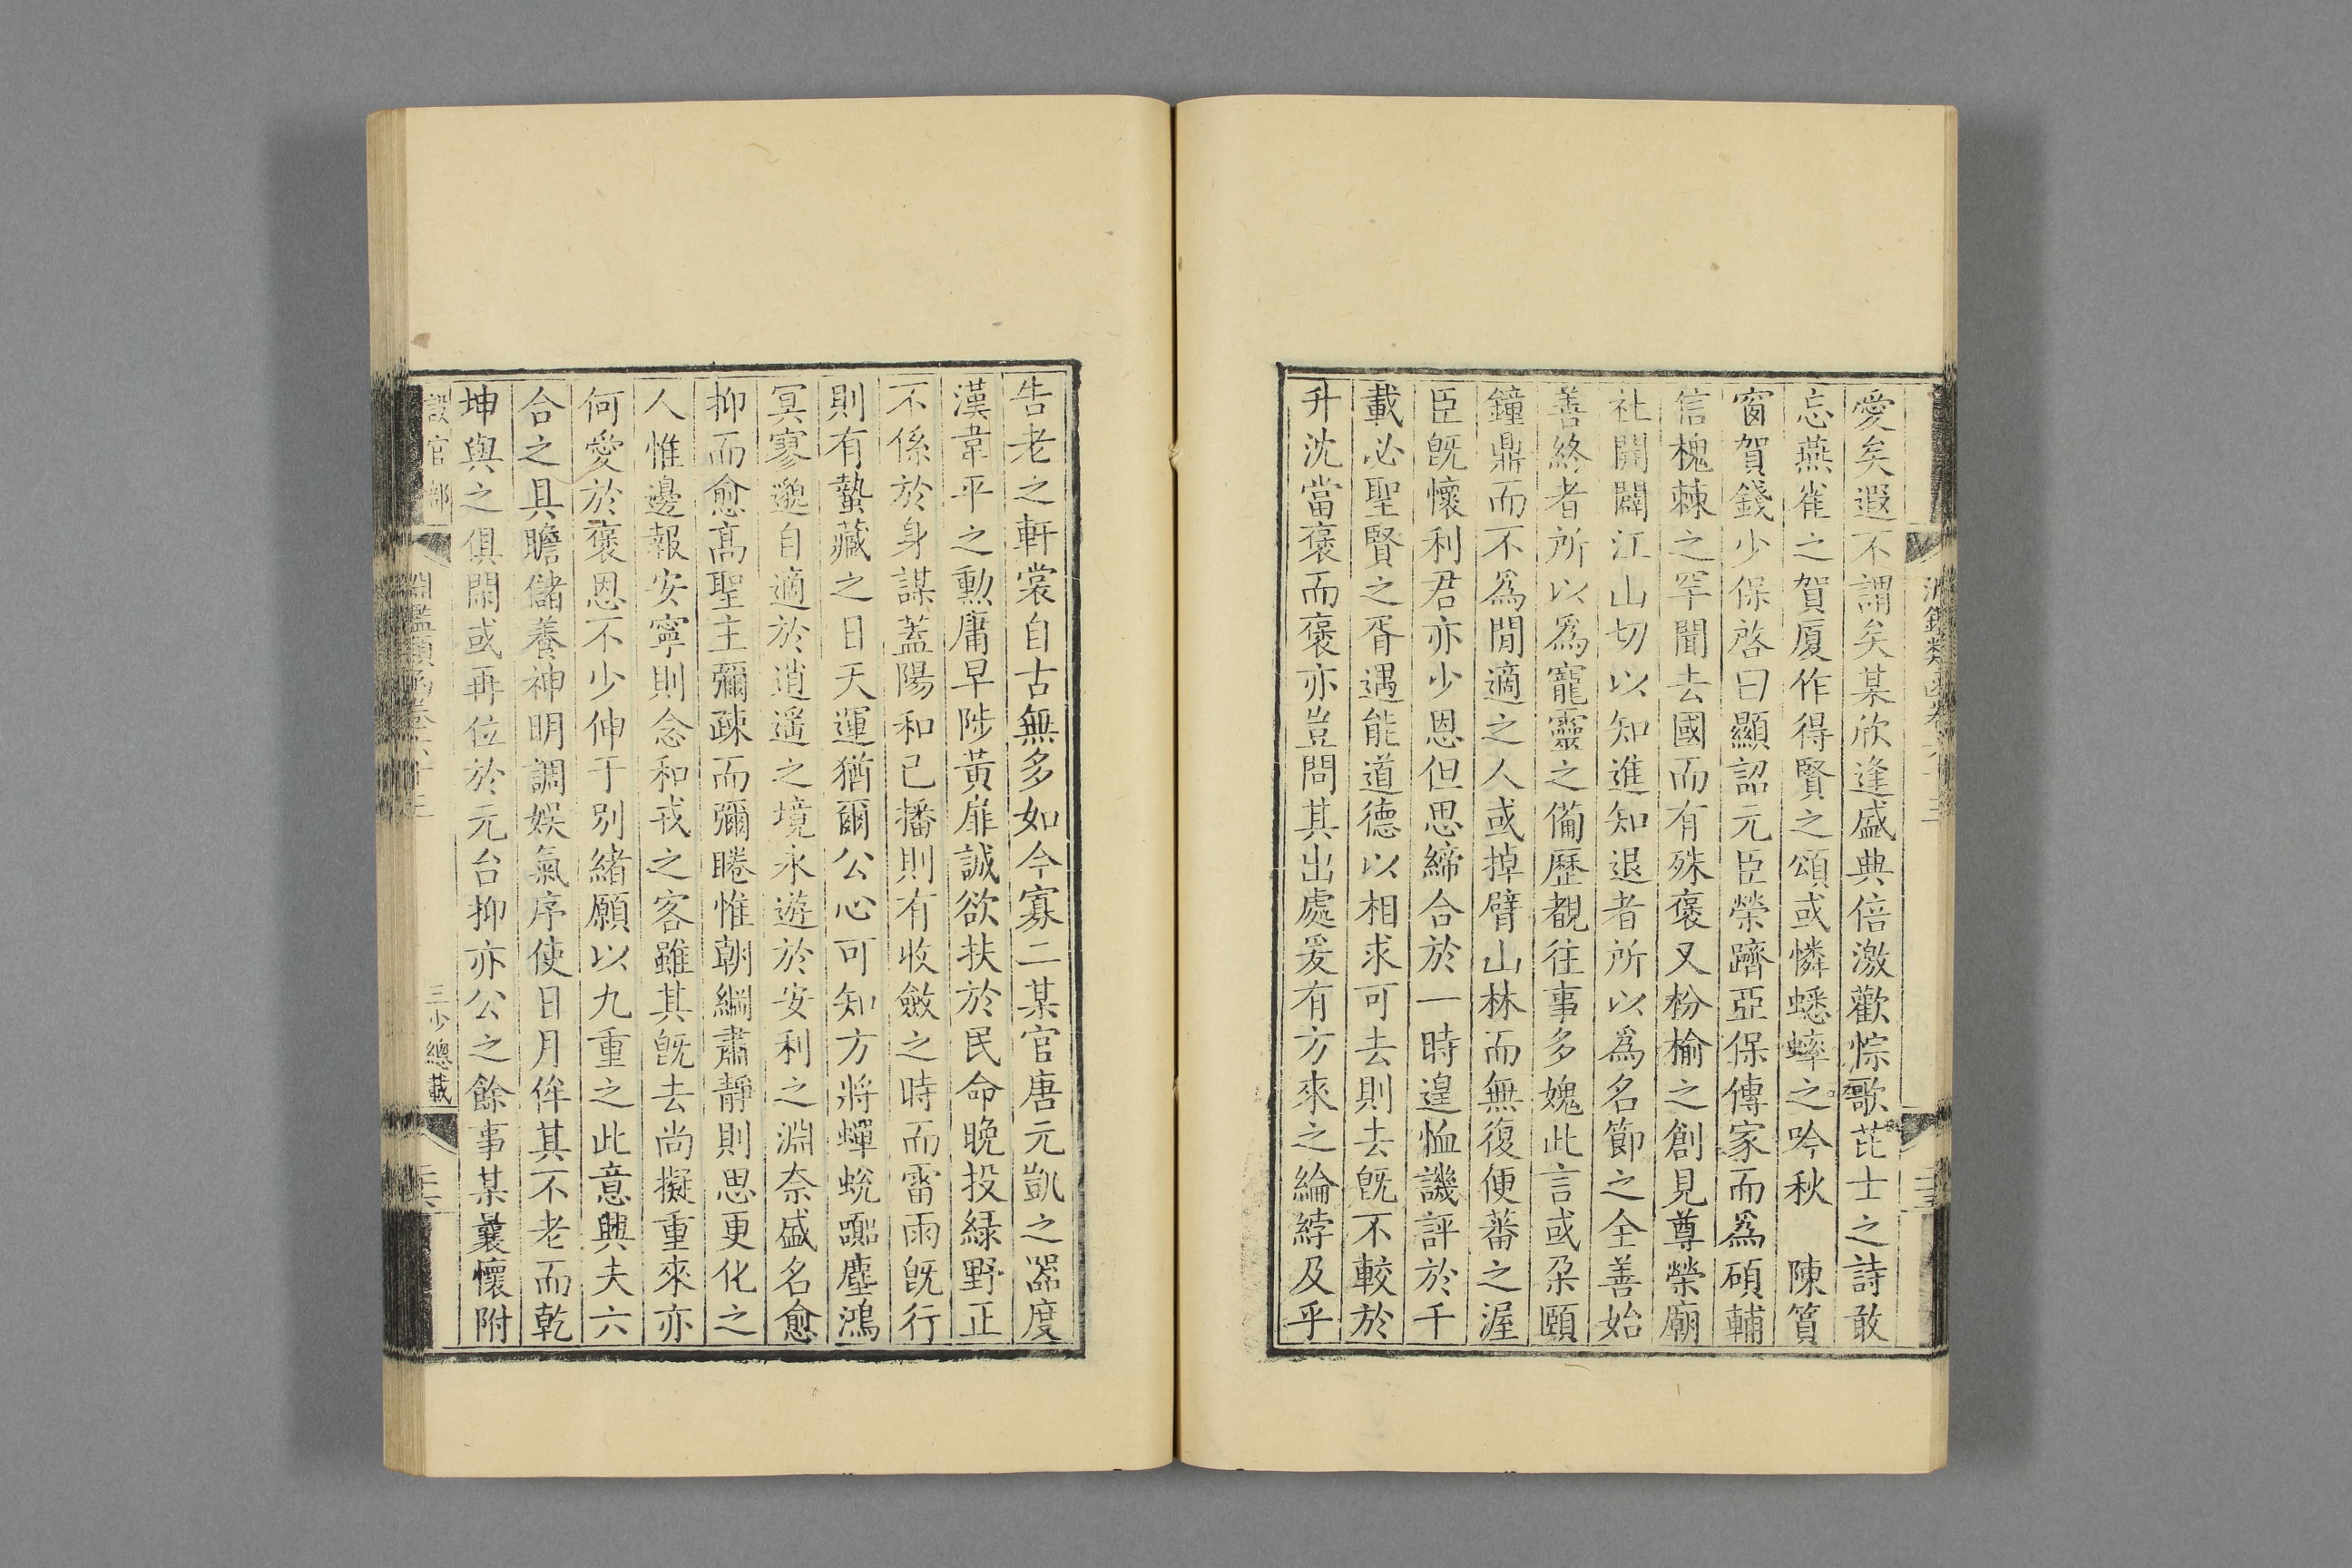 愛矣遐不謂矣某欣逢盛典倍激歡悰歌芘士之詩敢
忘燕雀之賀厦作得賢之頌或憐蟋蟀之吟秋　陳篔
窗賀錢少保啓曰顯詔元臣榮躋亞保傳家而爲碩輔
信槐棘之罕聞去國而有殊褒又枌榆之創見尊榮廟
社開闢江山切以知進知退者所以爲名節之全善始
善終者所以爲寵靈之備歷觀往事多媿此言或朶頤
鐘鼎而不爲閒適之人或掉臂山林而無復便蕃之渥
臣旣懷利君亦少恩但思締合於一時遑恤譏評於千
載必聖賢之胥遇能道德以相求可去則去旣不較於
升沈當褒而褒亦豈問其出處爰有方來之綸綍及乎
告老之軒裳自古無多如今寡二某官唐元凱之器度
漢韋平之勳庸早陟黃扉誠欲扶於民命晚投綠野正
不係於身謀蓋陽和已播則有收斂之時而雷雨旣行
則有蟄藏之日天運猶爾公心可知方將蟬蛻囂塵鴻
冥寥邈自適於逍遥之境永遊於安利之淵奈盛名愈
抑而愈高聖主彌疎而彌睠惟朝綱肅靜則思更化之
人惟邊報安寧則念和戎之客雖其旣去尚擬重來亦
何愛於褒恩不少伸于別緒願以九重之此意興夫六
合之具瞻儲養神明調娛氣序使日月侔其不老而乾
坤與之俱閑或再位於元台抑亦公之餘事某曩懷附
設官部　淵鑑類函卷六十三　三少總載　三六